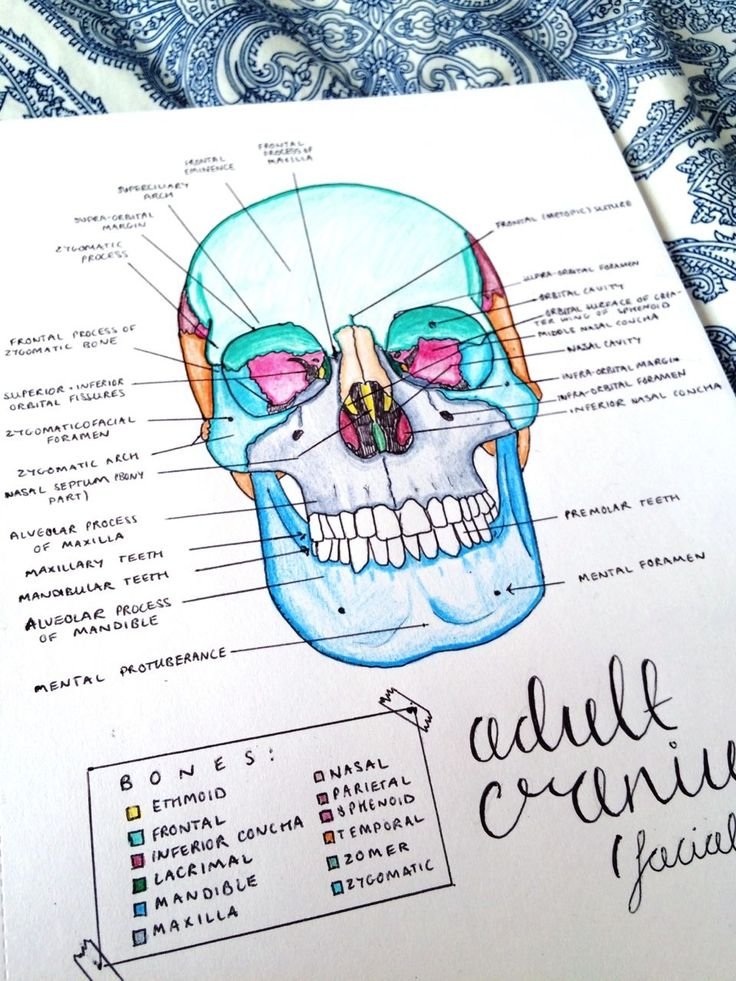 FRONTAL
PROCESS OF
MAXILLA
FRONTAL
EMINENCE
SUPERCILIARY
ARCH
SUPRA-ORBITAL
MARGIN
ZYGOMATIC
PROCESS
FRONTAL PROCESS OF
ZYGOMATIC BONE
SUPERIOR + INFERIOR
ORBITAL FISSURES
ZYGOMATICOFACIAL
FORAMEN
ZYGOMATIC ARCH
NASAL SEPTUM (BONY
PART)
ALVEOLAR PROCESS
OF MAXILLA
MAXILLARY TEETH
MANDIBULAR TEETH
ALVEOLAR PROCESS
OF MANDIBLE
MENTAL PROTUBERANCE
FRONTAL (METOPIC) SUTURE
SUPRA-ORBITAL FORAMEN
ORBITAL CAVITY
ORBITAL SURFACE OF GREA-
TER WING OF SPHENOID
MIDDLE NASAL CONCHA
NASAL CAVITY
INFRA-ORBITAL MARGIN
INFRA-ORBITAL FORAMEN
INFERIOR NASAL CONCHA
PREMOLAR TEETH
MENTAL FORAMEN
BONES:
ETHMOID
FRONTAL
INFERIOR CONCHA
LACRIMAL
MANDIBLE
MAXILLA
NASAL
PARIETAL
SPHENOID
TEMPORAL
ZOMER
ZYGOMATIC
adult
craniu
(facial